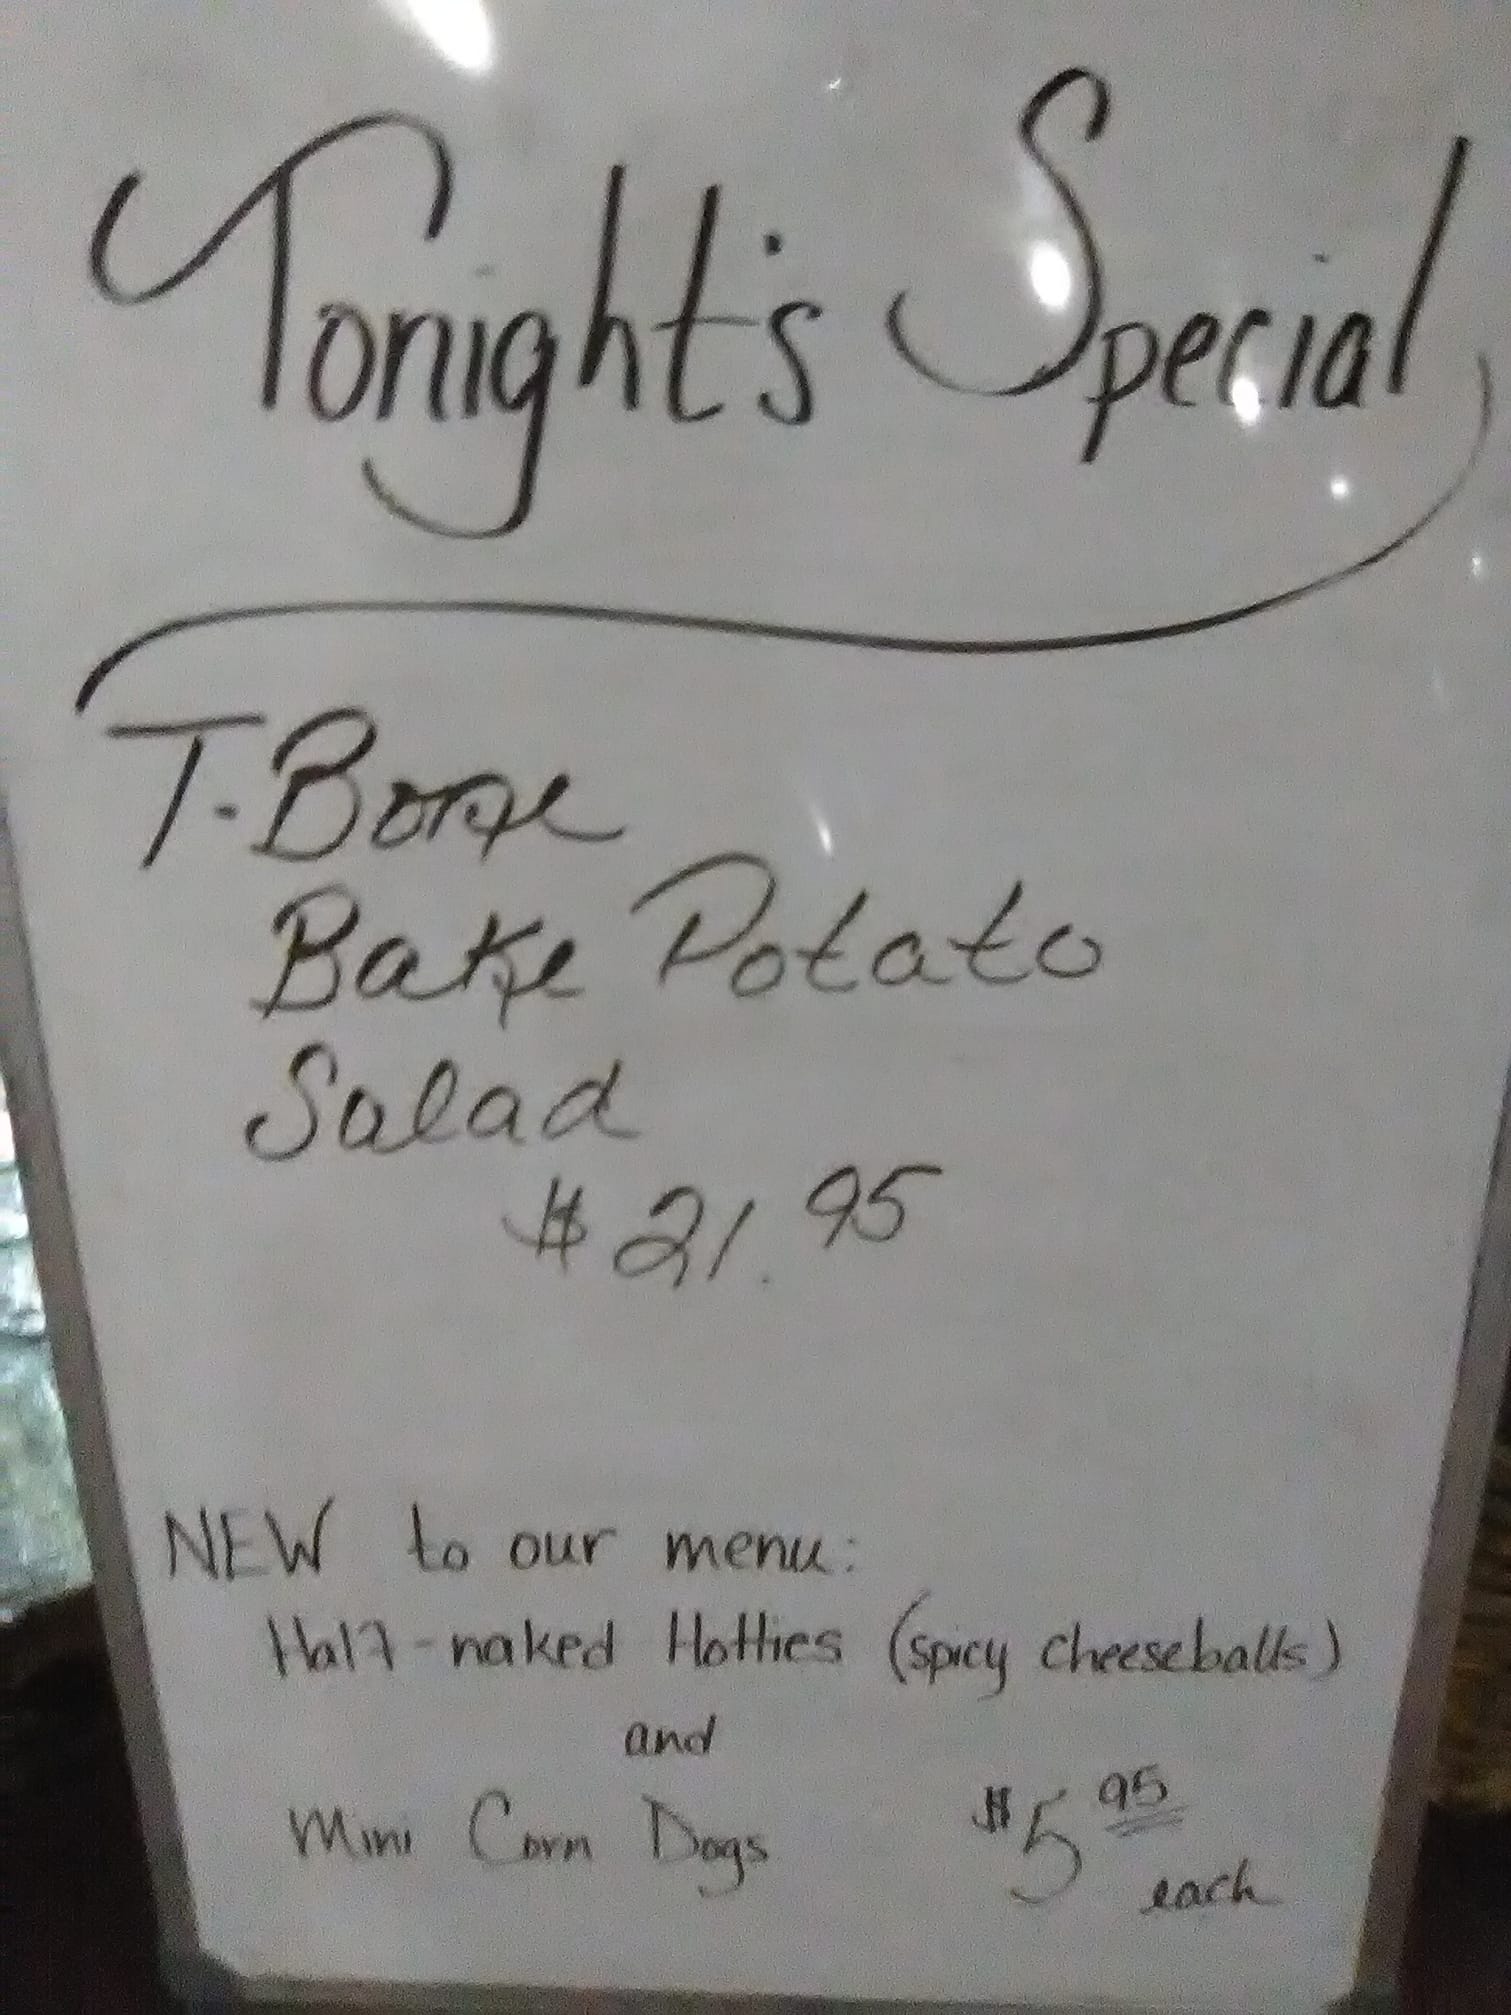 Tonight's Special
T-Bone
Bake Potato
Salad
$21.95
NEW to our menu:
Half-naked Hotties (spicy cheeseballs)
and
Mini Corn Dogs $5 95
each